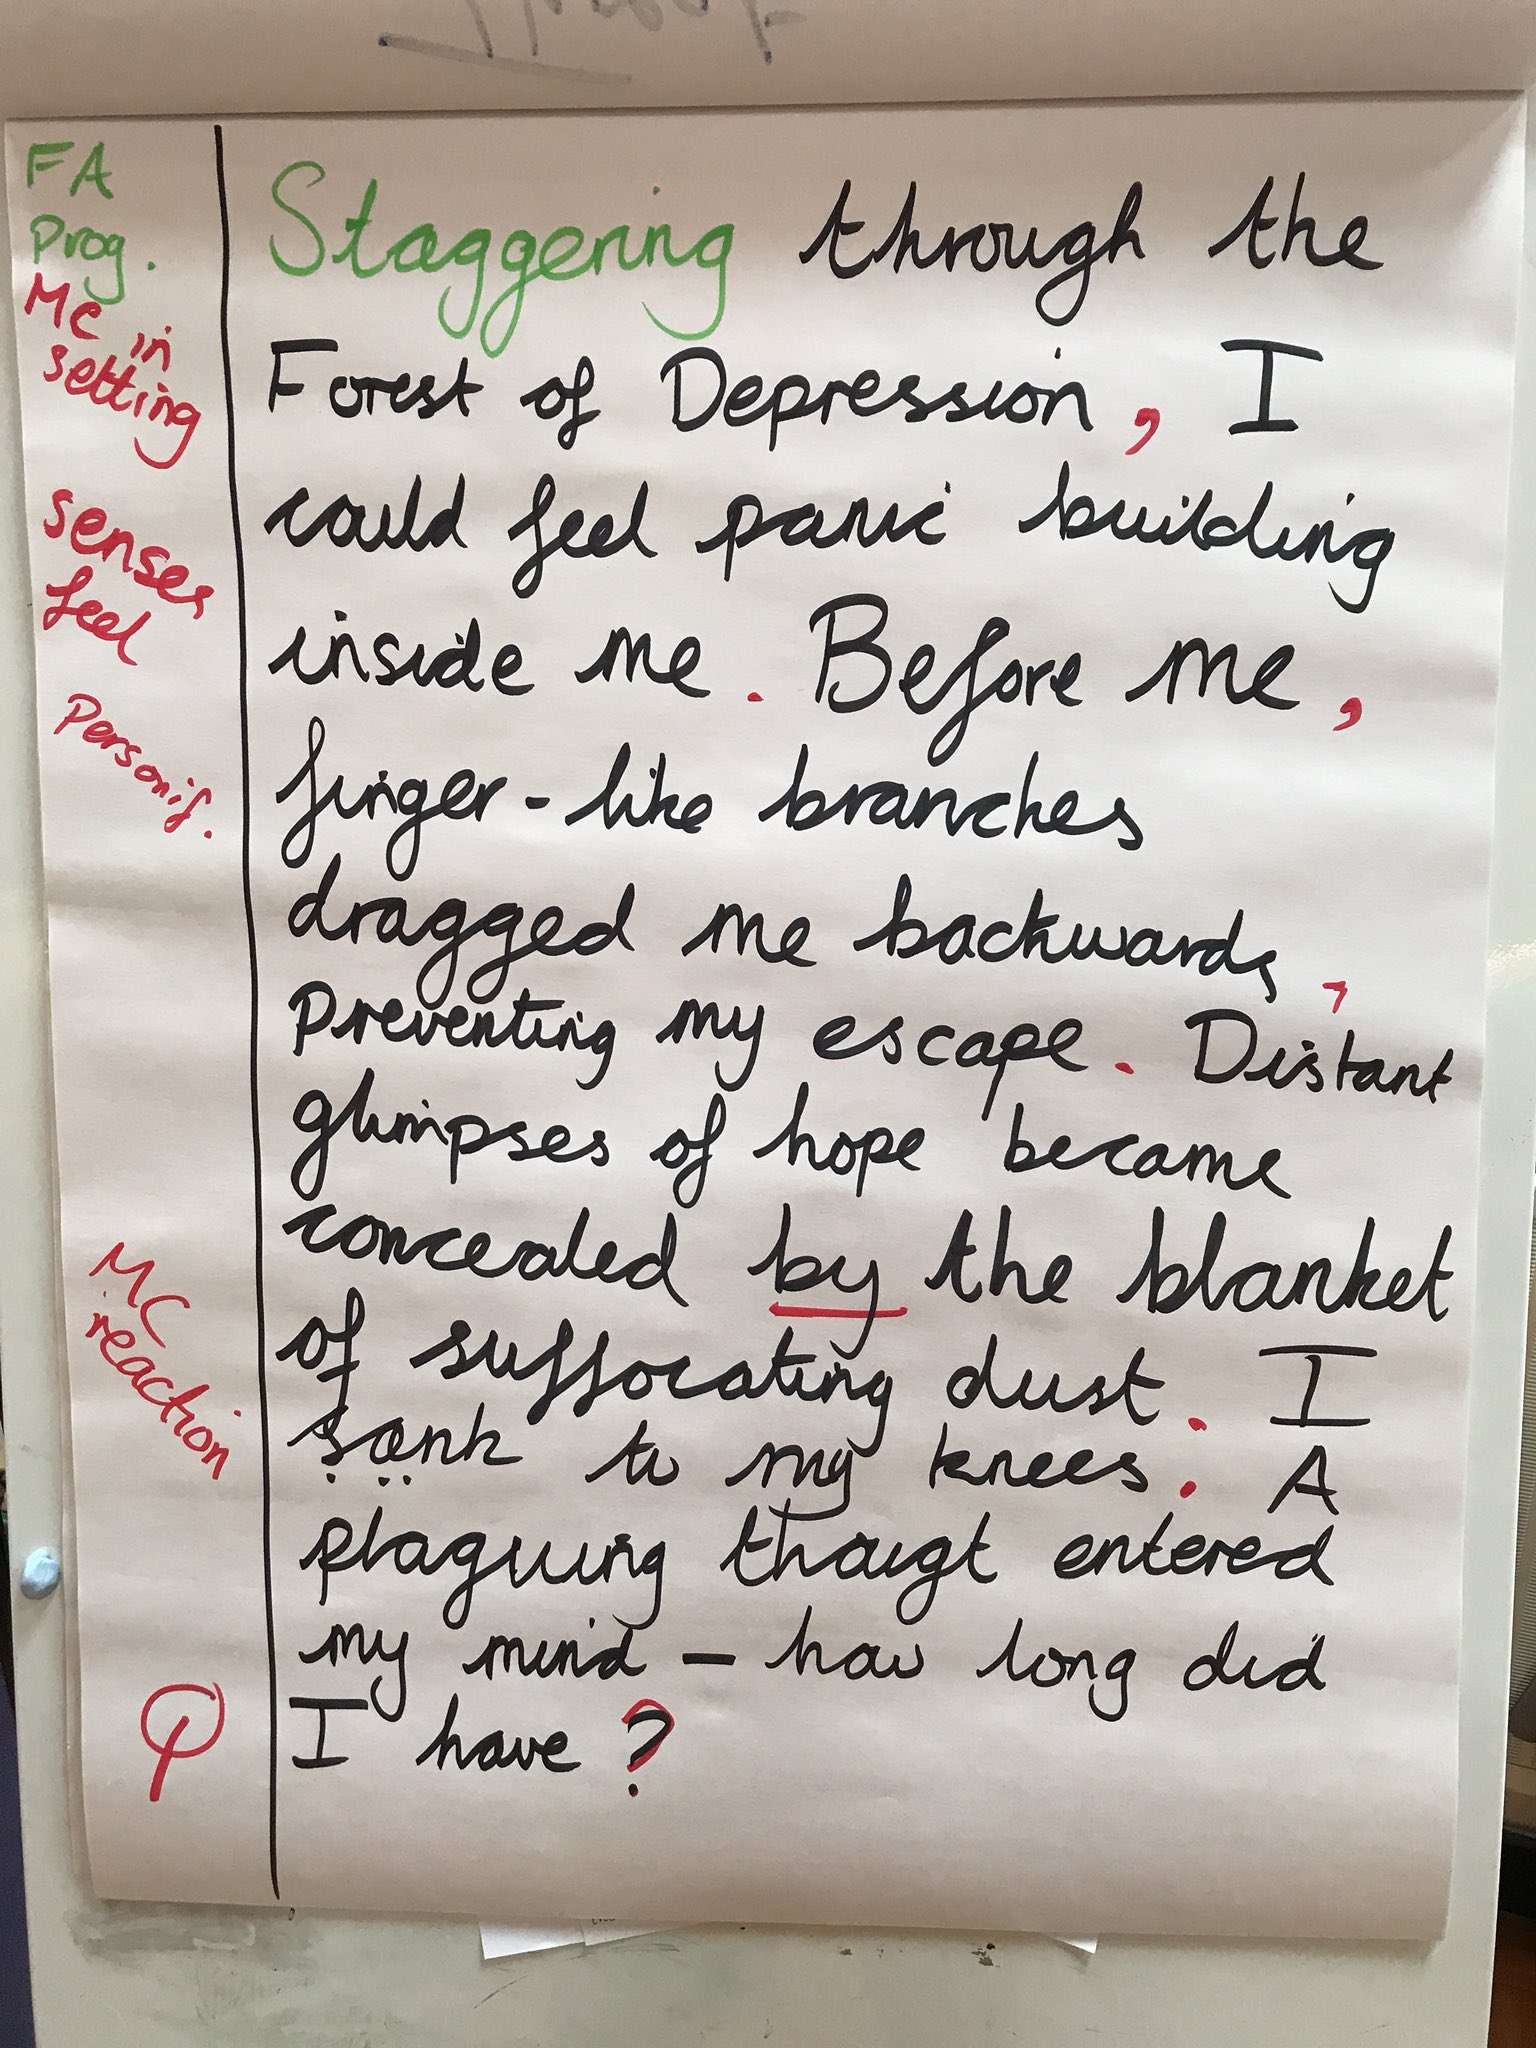 FA
Prog.
MC in
setting
senses
feel
Personif.
MC
reaction
Q
Staggering through the
Forest of Depression, I
could feel panic building
inside me. Before me,
finger-like branches
dragged me backwards,
Preventing my escape. Distant
glimpses of hope became
concealed by the blanket
of suffocating dust. I
sank to my knees. A
plaguing thougt entered
my mind – how long did
I have?